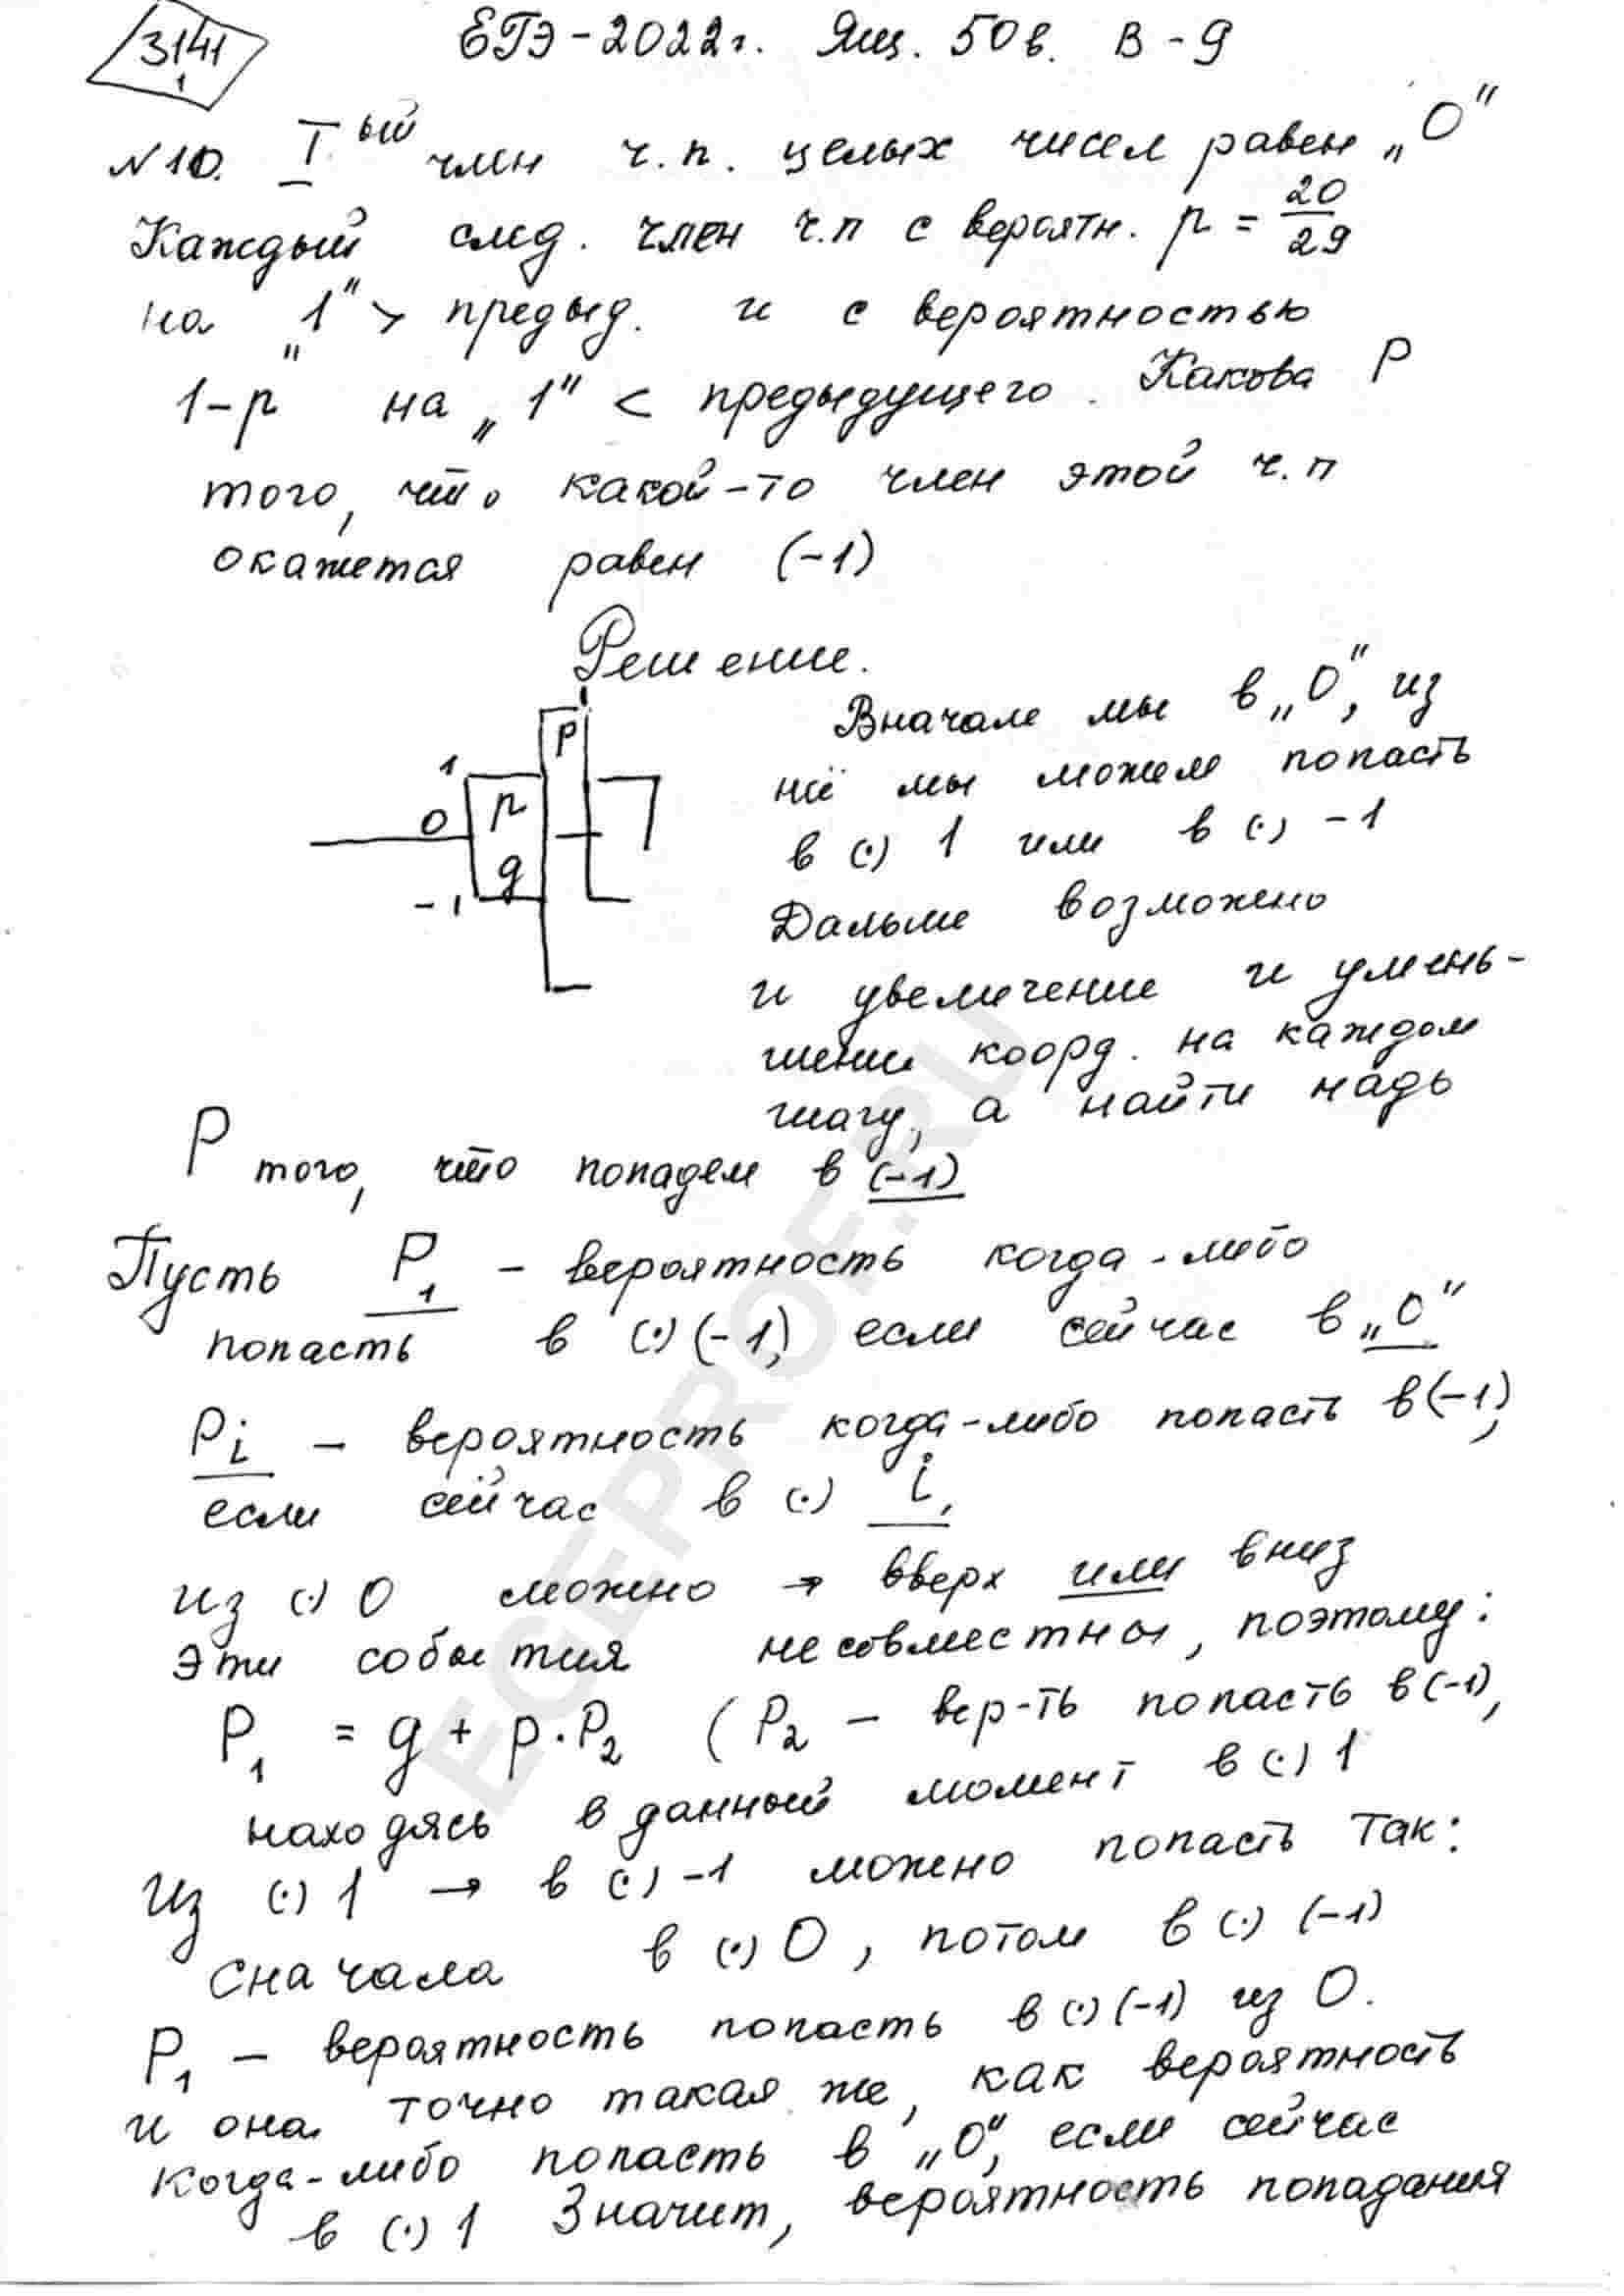 3141
1
ЕГЭ-2022г. Ящ. 50в. В-9
N10. I ый член ч.п. целых чисел равен „0"
Каждый след. член ч.п с вероятн. p = 20/29
на „1" > предыд. и с вероятностью
1-p на „1" < предыдущего. Какова P
того, что какой-то член этой ч.п
окажется равен (-1)
Решение.
1
P
1
0
p
g
-1
Вначале мы в „0", из
неё мы можем попасть
в (·) 1 или в (·) -1
Дальше возможно
и увеличение и умень-
шении коорд. на каждом
шагу, а найти надь
P того, что попадем в (-1)
Пусть P1 - вероятность когда-либо
попасть в (·) (-1), если сейчас в „0"
Pi - вероятность когда-либо попасть в (-1),
если сейчас в (·) i,
из (·) 0 можно → вверх или вниз
Эти события несовместны, поэтому:
P1 = g + p·P2 (P2 - вер-ть попасть в (-1),
находясь в данный момент в (·) 1
Из (·) 1 → в (·) -1 можно попасть так:
Сначала в (·) 0, потом в (·) (-1)
P1 - вероятность попасть в (·) (-1) из 0.
и она точно такая же, как вероятность
когда-либо попасть в „0", если сейчас
в (·) 1 Значит, вероятность попадания
EGEPROF.RU